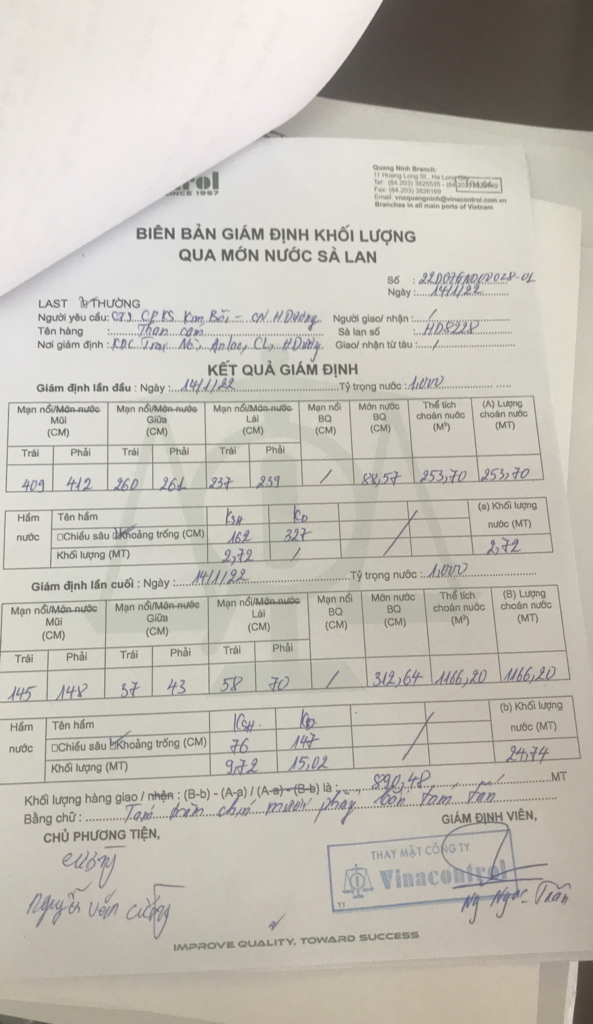 trol
SINCE 1957
Quang Ninh Branch:
11 Hoang Long St., Ha Long City
Tel: (84.203) 3825535 -
Fax: (84.203) 3826169
Email: vncquangninh@vinacontrol.com.vn
Branches in all main ports of Vietnam
BIÊN BẢN GIÁM ĐỊNH KHỐI LƯỢNG
QUA MỚN NƯỚC SÀ LAN
Số : 22D07GND02028-01
Ngày : 14/1/22
LAST THƯỜNG
Người yêu cầu: CTy CPKS Kim Bôi - CN H Dương Người giao/ nhận : /
Tên hàng : Than cám Sà lan số : HD8228
Nơi giám định : KDC Trại Nẻ, An lạc, CL, H Dương. Giao/ nhận từ tàu : /
KẾT QUẢ GIÁM ĐỊNH
Giám định lần đầu : Ngày : 14/1/22 Tỷ trọng nước : 1,000
Mạn nổi/Mớn nước Mũi (CM) Mạn nổi/Mớn nước Giữa (CM) Mạn nổi/Mớn nước Lái (CM) Mạn nổi BQ (CM) Mớn nước BQ (CM) Thể tích choán nước (M³) (A) Lượng choán nước (MT)
Trái Phải Trái Phải Trái Phải
409 412 260 261 237 239 / 88,57 253,70 253,70
Hầm nước Tên hầm KSH KĐ (a) Khối lượng nước (MT)
Chiều sâu Khoảng trống (CM) 162 327
Khối lượng (MT) 2,72 / 2,72
Giám định lần cuối : Ngày : 14/1/22 Tỷ trọng nước : 1,000
Mạn nổi/Mớn nước Mũi (CM) Mạn nổi/Mớn nước Giữa (CM) Mạn nổi/Mớn nước Lái (CM) Mạn nổi BQ (CM) Mớn nước BQ (CM) Thể tích choán nước (M³) (B) Lượng choán nước (MT)
Trái Phải Trái Phải Trái Phải
145 148 37 43 58 70 / 312,64 1166,20 1166,20
Hầm nước Tên hầm KSH KĐ (b) Khối lượng nước (MT)
Chiều sâu Khoảng trống (CM) 76 147
Khối lượng (MT) 9,72 15,02 24,74
Khối lượng hàng giao / nhận : (B-b) - (A-a) / (A-a) - (B-b) là : 890,48 MT
Bằng chữ : Tám trăm chín mươi phảy bốn tám tấn
CHỦ PHƯƠNG TIỆN, GIÁM ĐỊNH VIÊN,
cường
Nguyễn Văn Cường
THAY MẶT CÔNG TY
Vinacontrol
11
Ng Ngọc Trãn
IMPROVE QUALITY, TOWARD SUCCESS